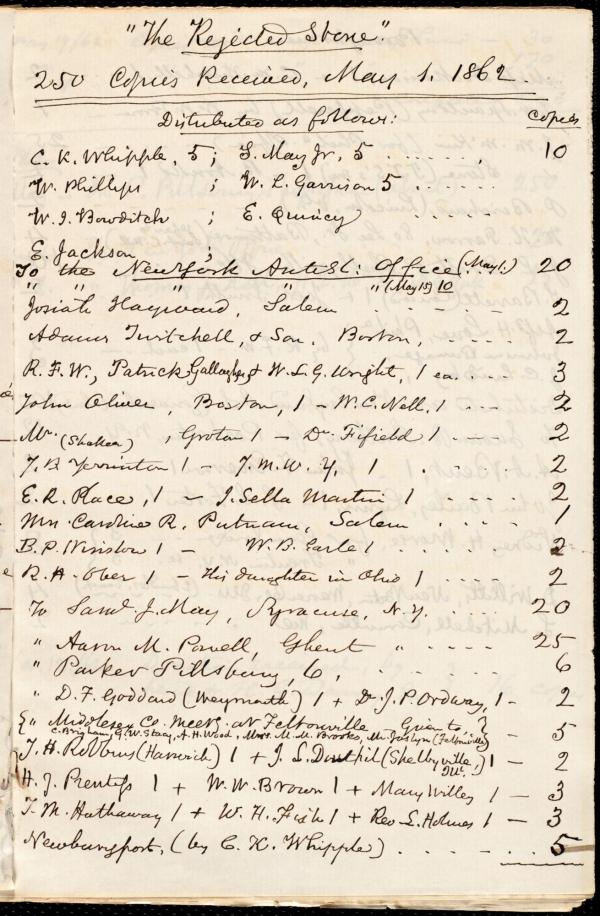 "The Rejected Stone".
250 Copies Received, May 1. 1862.
Distributed as follows: Copies
C. K. Whipple, 5; S. May Jr, 5 10
W. Phillips ; W. L. Garrison 5
W. I. Bowditch ; E. Quincy
E. Jackson ;
To the New York Antisl: Office (May 1.) 20
" " " " (May 15) 10
Josiah Hayward, Salem 2
Adams Twitchell, & Son, Boston, 2
R. F. W., Patrick Gallagher, & W. L. G. Wright, 1 ea. 3
John Oliver, Boston, 1 – W. C. Nell, 1 2
Mr. (Shaker), Groton 1 – Dr. Fifield 1 2
J. B. Yerrinton 1 – J. M. W. Y. 1 2
E. R. Place, 1 – J. Sella Martin 1 2
Mrs. Caroline R. Putnam, Salem 1
B. P. Winslow 1 – W. B. Earle 1 2
R. H. Ober 1 – His daughter in Ohio 1 2
To Saml. J. May, Syracuse, N. Y. 20
" Aaron M. Powell, Ghent " 25
" Parker Pillsbury, 6, 6
" D. F. Goddard (Weymouth) 1 + Dr. J. P. Ordway, 1 – 2
{" Middlesex Co. Meetg. at Feltonville – Given to } – 5
C. Brigham, G. W. Stacy, A. H. Wood, Mrs. M. M. Brooks, Mr. Joslyn (Feltonville)
J. H. Robbins (Harwich) 1 + J. S. (Shelbyville, Ill.) 1 – 2
H. J. Prentiss 1 + W. W. Brown 1 + Mary Willey 1 – 3
T. M. Hathaway 1 + W. H. Fish 1 + Rev S. Holmes 1 – 3
Newburyport, (by C. K. Whipple) 5